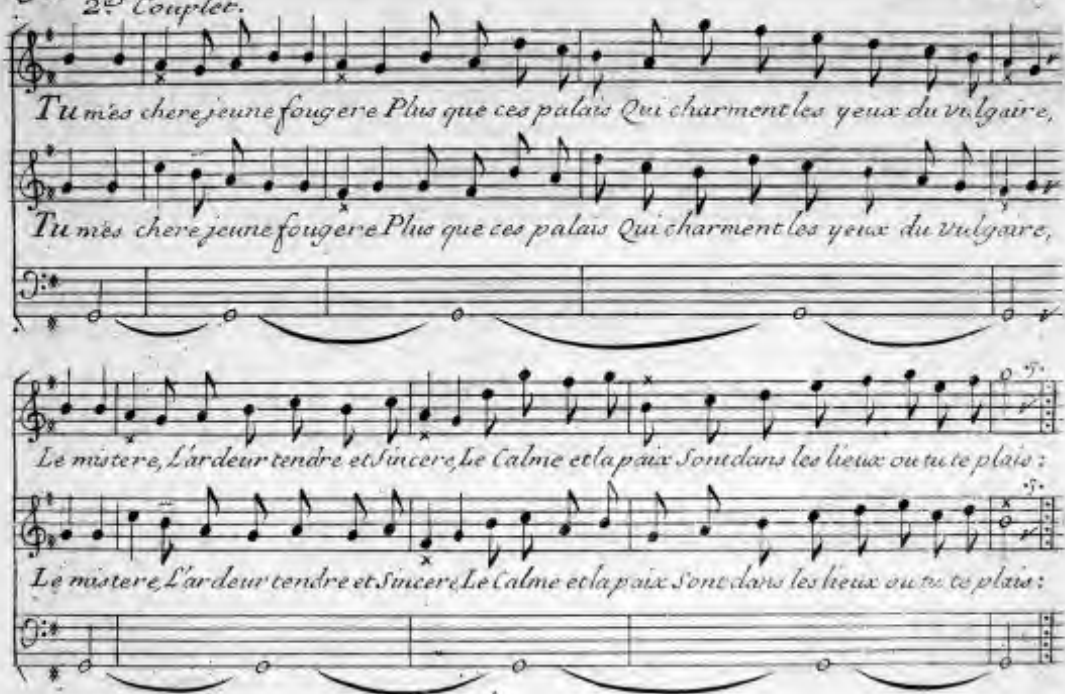 2.e Couplet.
Tu m'es chere jeune fougere Plus que ces palais Qui charment les yeux du vulgaire,
Tu m'es chere jeune fougere Plus que ces palais Qui charment les yeux du vulgaire,
Le mistere, L'ardeur tendre et Sincere, Le Calme et la paix Sont dans les lieux ou tu te plais :
Le mistere, L'ardeur tendre et Sincere, Le Calme et la paix Sont dans les lieux ou tu te plais :